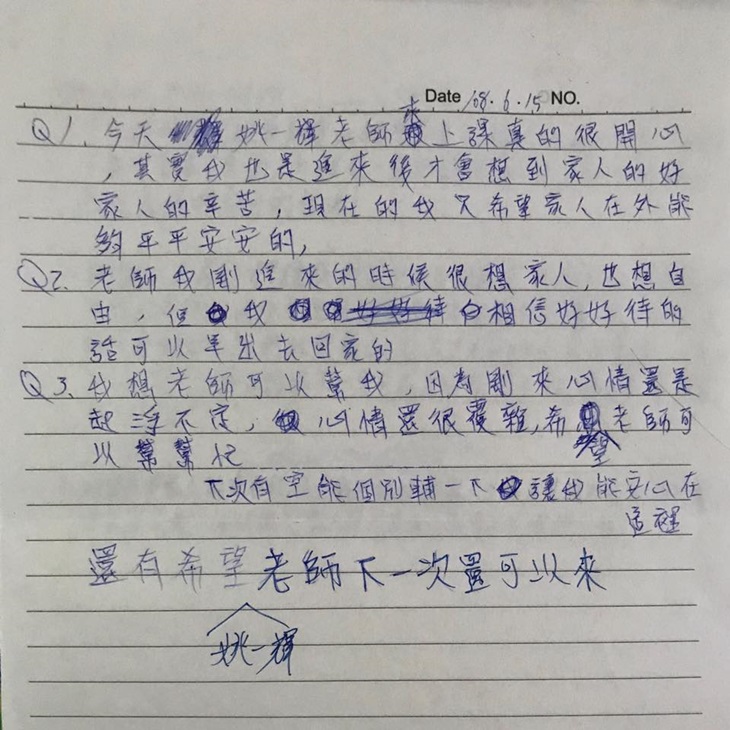 Date 108.6.15 NO.
Q1. 今天姚一輝老師來上課真的很開心
，其實我也是進來後才會想到家人的好
家人的辛苦，現在的我只希望家人在外能
夠平平安安的，
Q2. 老師我剛進來的時候很想家人，也想自
由，但我相信好好待的
話可以早出去回家的
Q3. 我想老師可以幫我，因為剛來心情還是
起浮不定，心情還很覆雜，希望老師可
以幫幫忙
下次有空能個別輔一下讓我能安心在
這裡
還有希望老師下一次還可以來
姚一輝